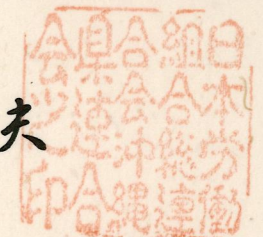 日本労働
組合総連
合会沖縄
県連合
会之印
夫